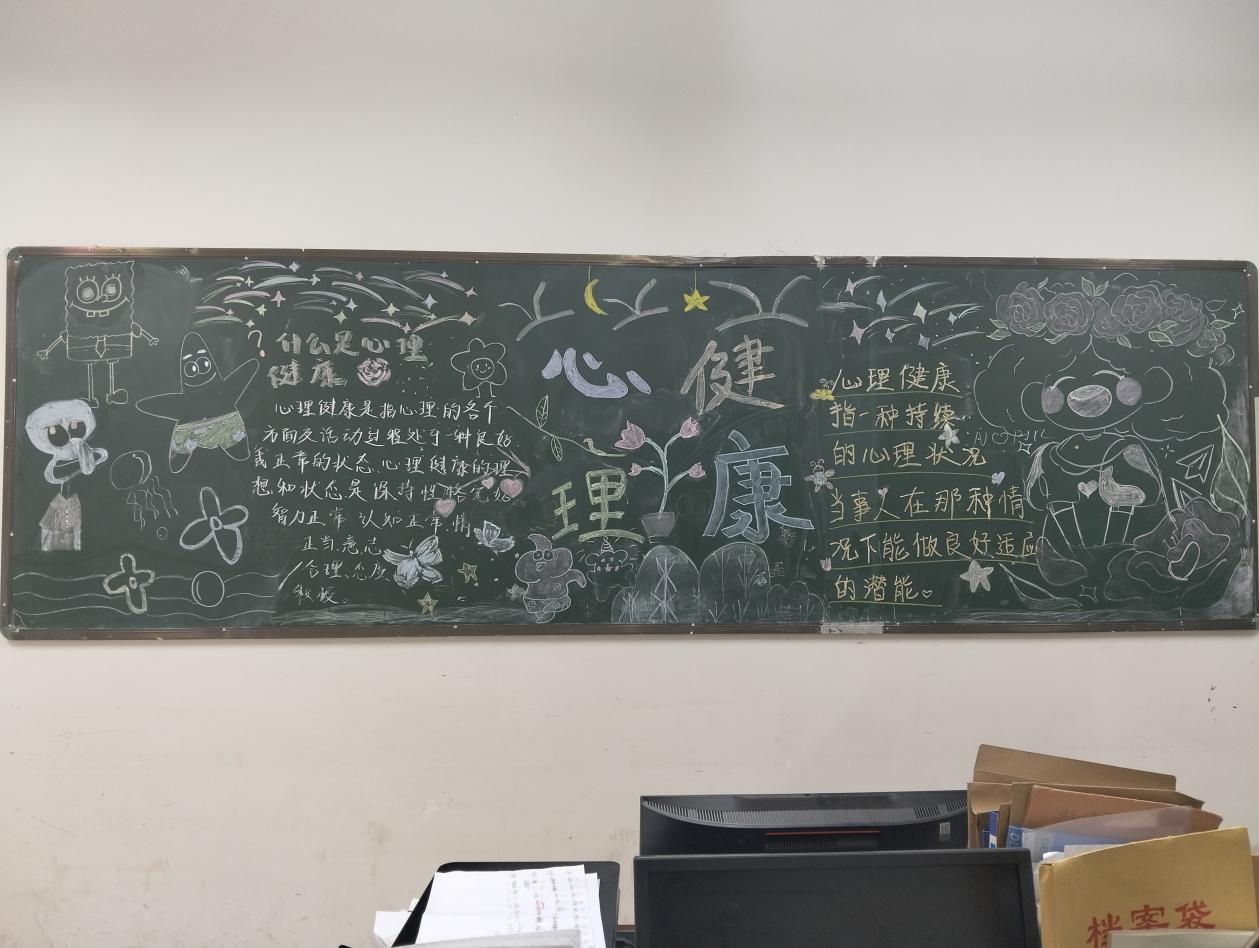 ?什么是心理
健康
心理健康是指心理的各个
方面及活动过程处于一种良好
或正常的状态.心理健康的理
想和状态是保持性格完好
智力正常 认知正常 情
正当.意志
合理、态度
积极。
心 健
理 康
心理健康
指一种持续
的心理状况
当事人在那种情
况下能做良好适应
的潜能
档案袋